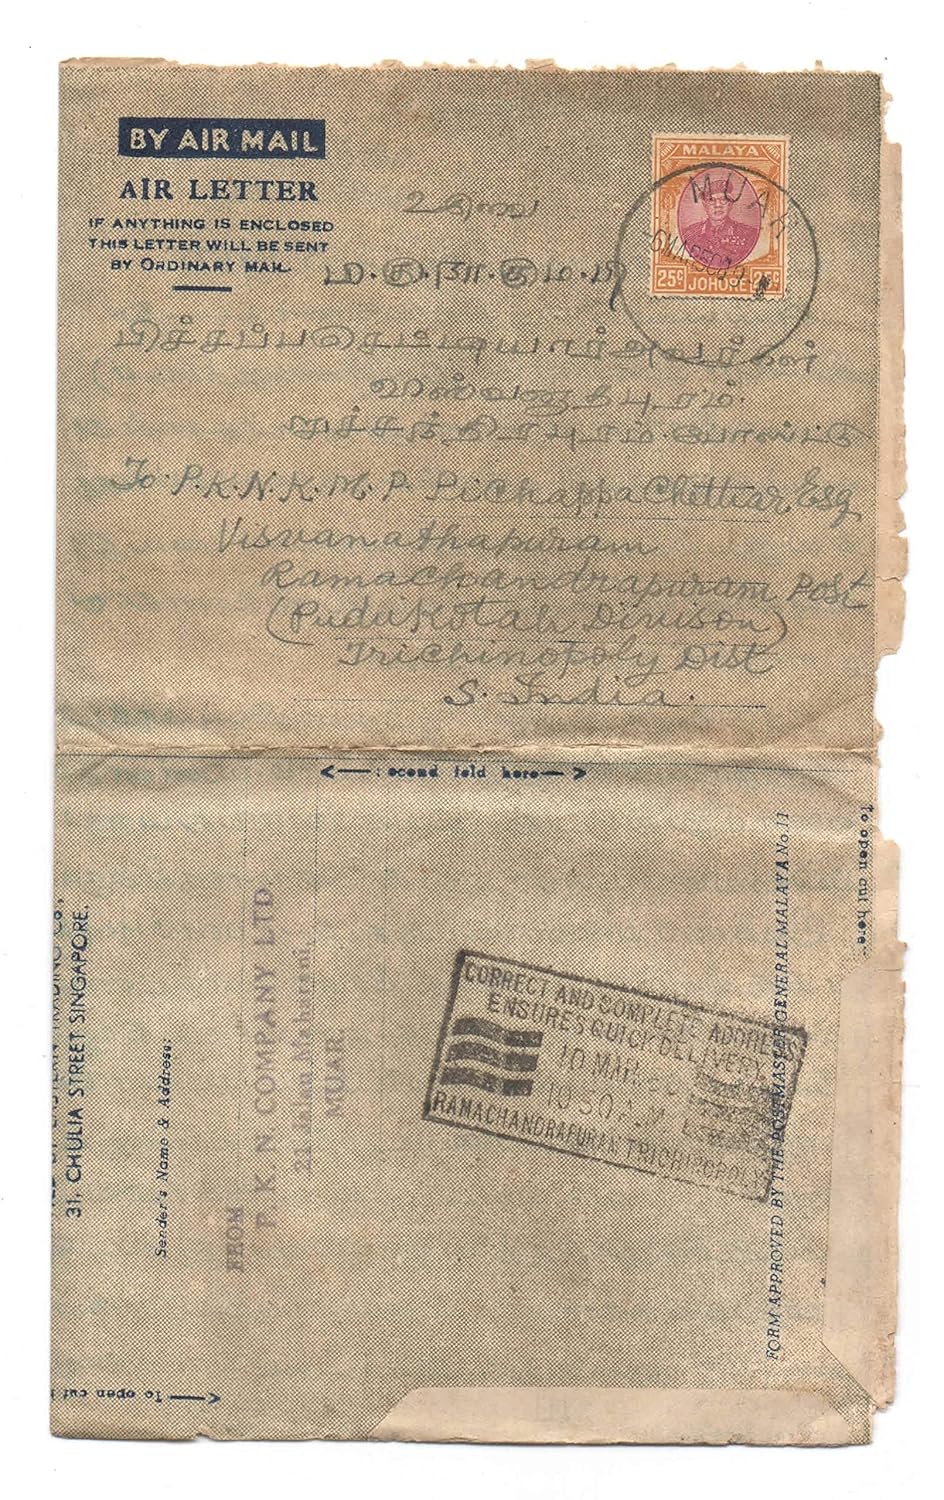 BY AIR MAIL
AIR LETTER
IF ANYTHING IS ENCLOSED
THIS LETTER WILL BE SENT
BY ORDINARY MAIL
MALAYA
25c JOHORE 25c
MUAR
உ
பிச்சப்பசெட்டியார் அவர்கள்
To P.K.N.K.M.P. Pichappa Chettiar, Esq
Visvanathapuram
Ramachandrapuram Post
(Pudukotah Divison)
Trichinopoly Dist
S. India.
<—: econd fold here—>
To open cut here
31, CHULIA STREET SINGAPORE.
Sender's Name & Address:
FROM
P. K. N COMPANY LTD.
21 Jalan Maharani,
MUAR
CORRECT AND COMPLETE ADDRESS
ENSURES QUICK DELIVERY
10 MAR
10 30 A.M.
RAMACHANDRAPURAM TRICHINOPOLY
FORM APPROVED BY THE POSTMASTER GENERAL MALAYA No. 11
To open cut